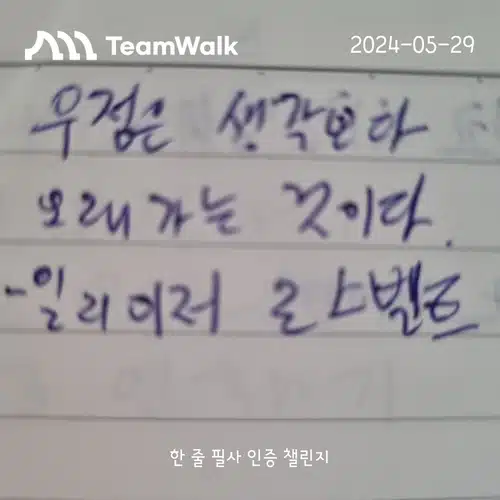 TeamWalk
2024-05-29
우정은 생각보다
오래가는 것이다.
-일리이저 루스벨트
한 줄 필사 인증 챌린지